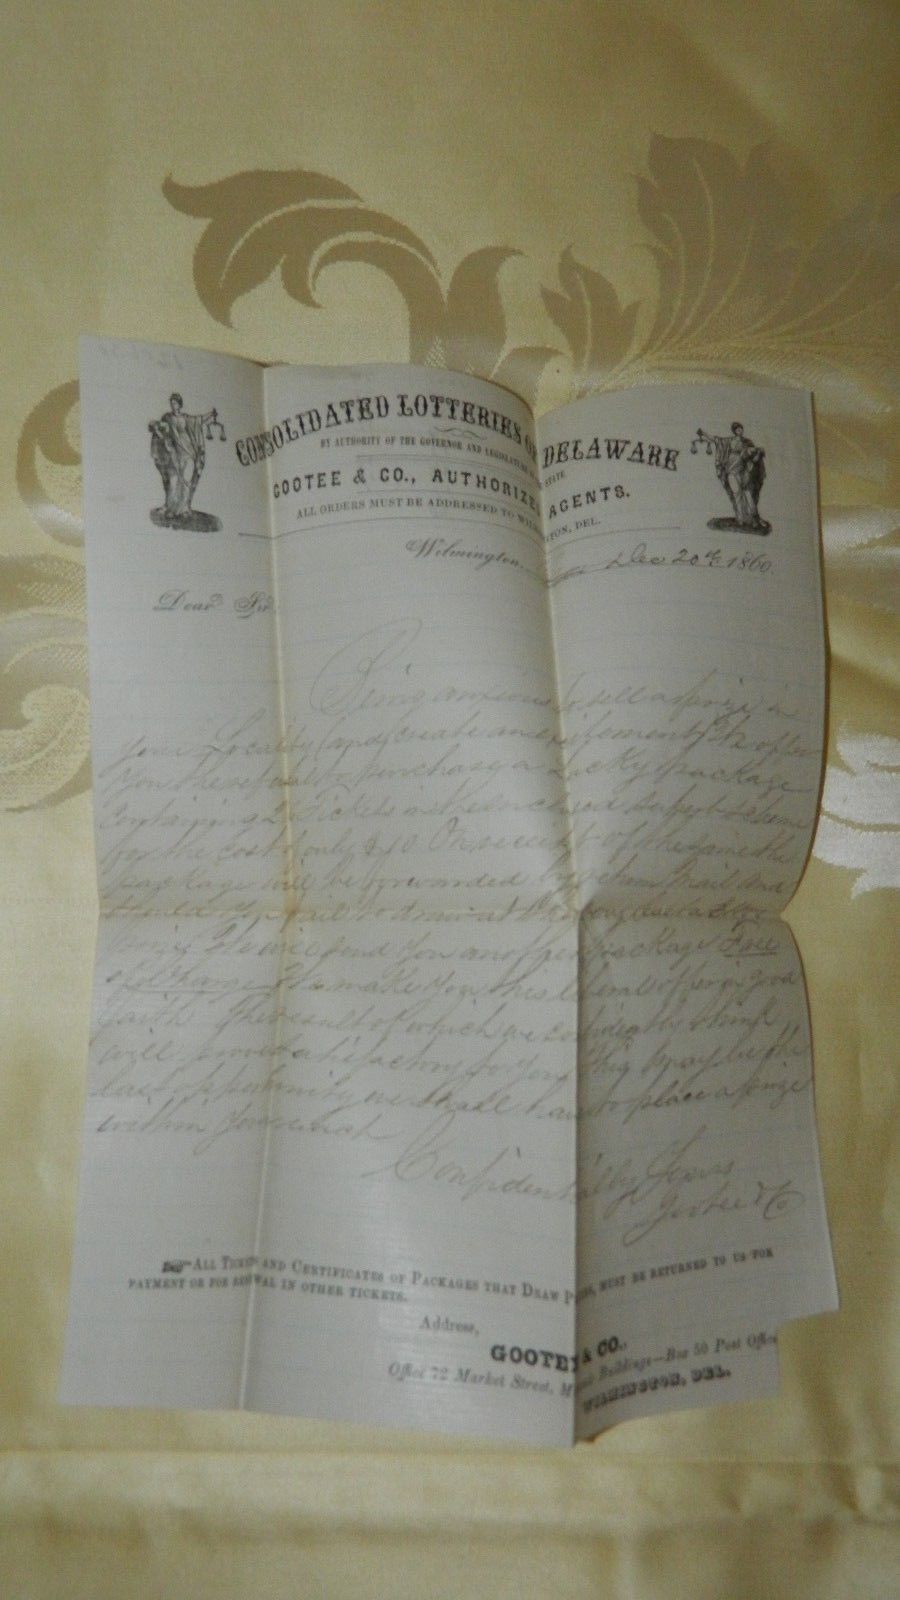 CONSOLIDATED LOTTERIES OF DELAWARE
BY AUTHORITY OF THE GOVERNOR AND LEGISLATURE STATE
GOOTEE & CO., AUTHORIZED AGENTS.
ALL ORDERS MUST BE ADDRESSED TO WILMINGTON, DEL.
Wilmington, Dec 20th 1860
Dear Sir
Being anxious to sell a prize in
your Locality (and create an excitement) We offer
You the refusal to purchase a Lucky package
Containing 2 Tickets in the enclosed scheme
for the cost of only On receipt of the same the
package will be forwarded by return Mail and
should You fail to draw at
prize We will send You another package Free
of Charge We make You this liberal offer in good
faith The result of which we think
will prove satisfactory to You This may be the
last opportunity we shall have to place a prize
within Your reach
Confidentially Yours
Gootee & Co
ALL TICKETS AND CERTIFICATES OF PACKAGES THAT DRAW PRIZES, MUST BE RETURNED TO US FOR
PAYMENT OR FOR RENEWAL IN OTHER TICKETS.
Address,
GOOTEE & CO.
Office 72 Market Street, Buildings—Box 50 Post Office
WILMINGTON, DEL.